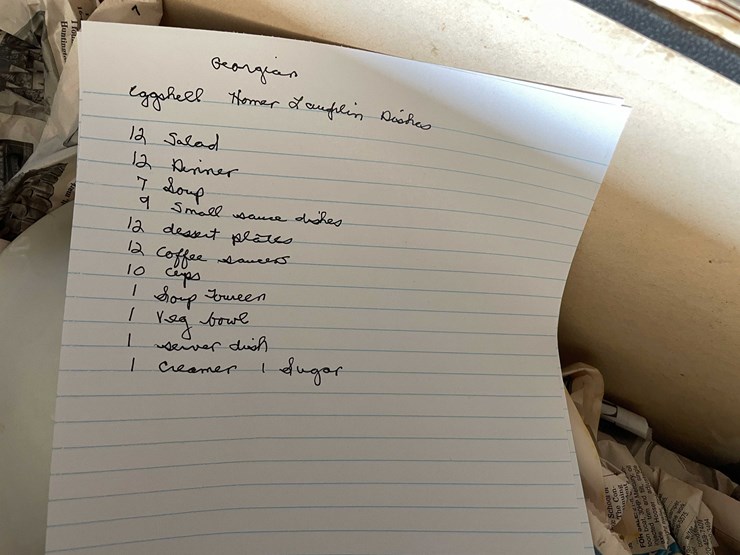 Georgian
Eggshell Homer Laughlin Dishes
12 Salad
12 Dinner
7 Soup
9 Small sauce dishes
12 dessert plates
12 Coffee saucers
10 Cups
1 Soup Tureen
1 Veg bowl
1 server dish
1 Creamer 1 Sugar